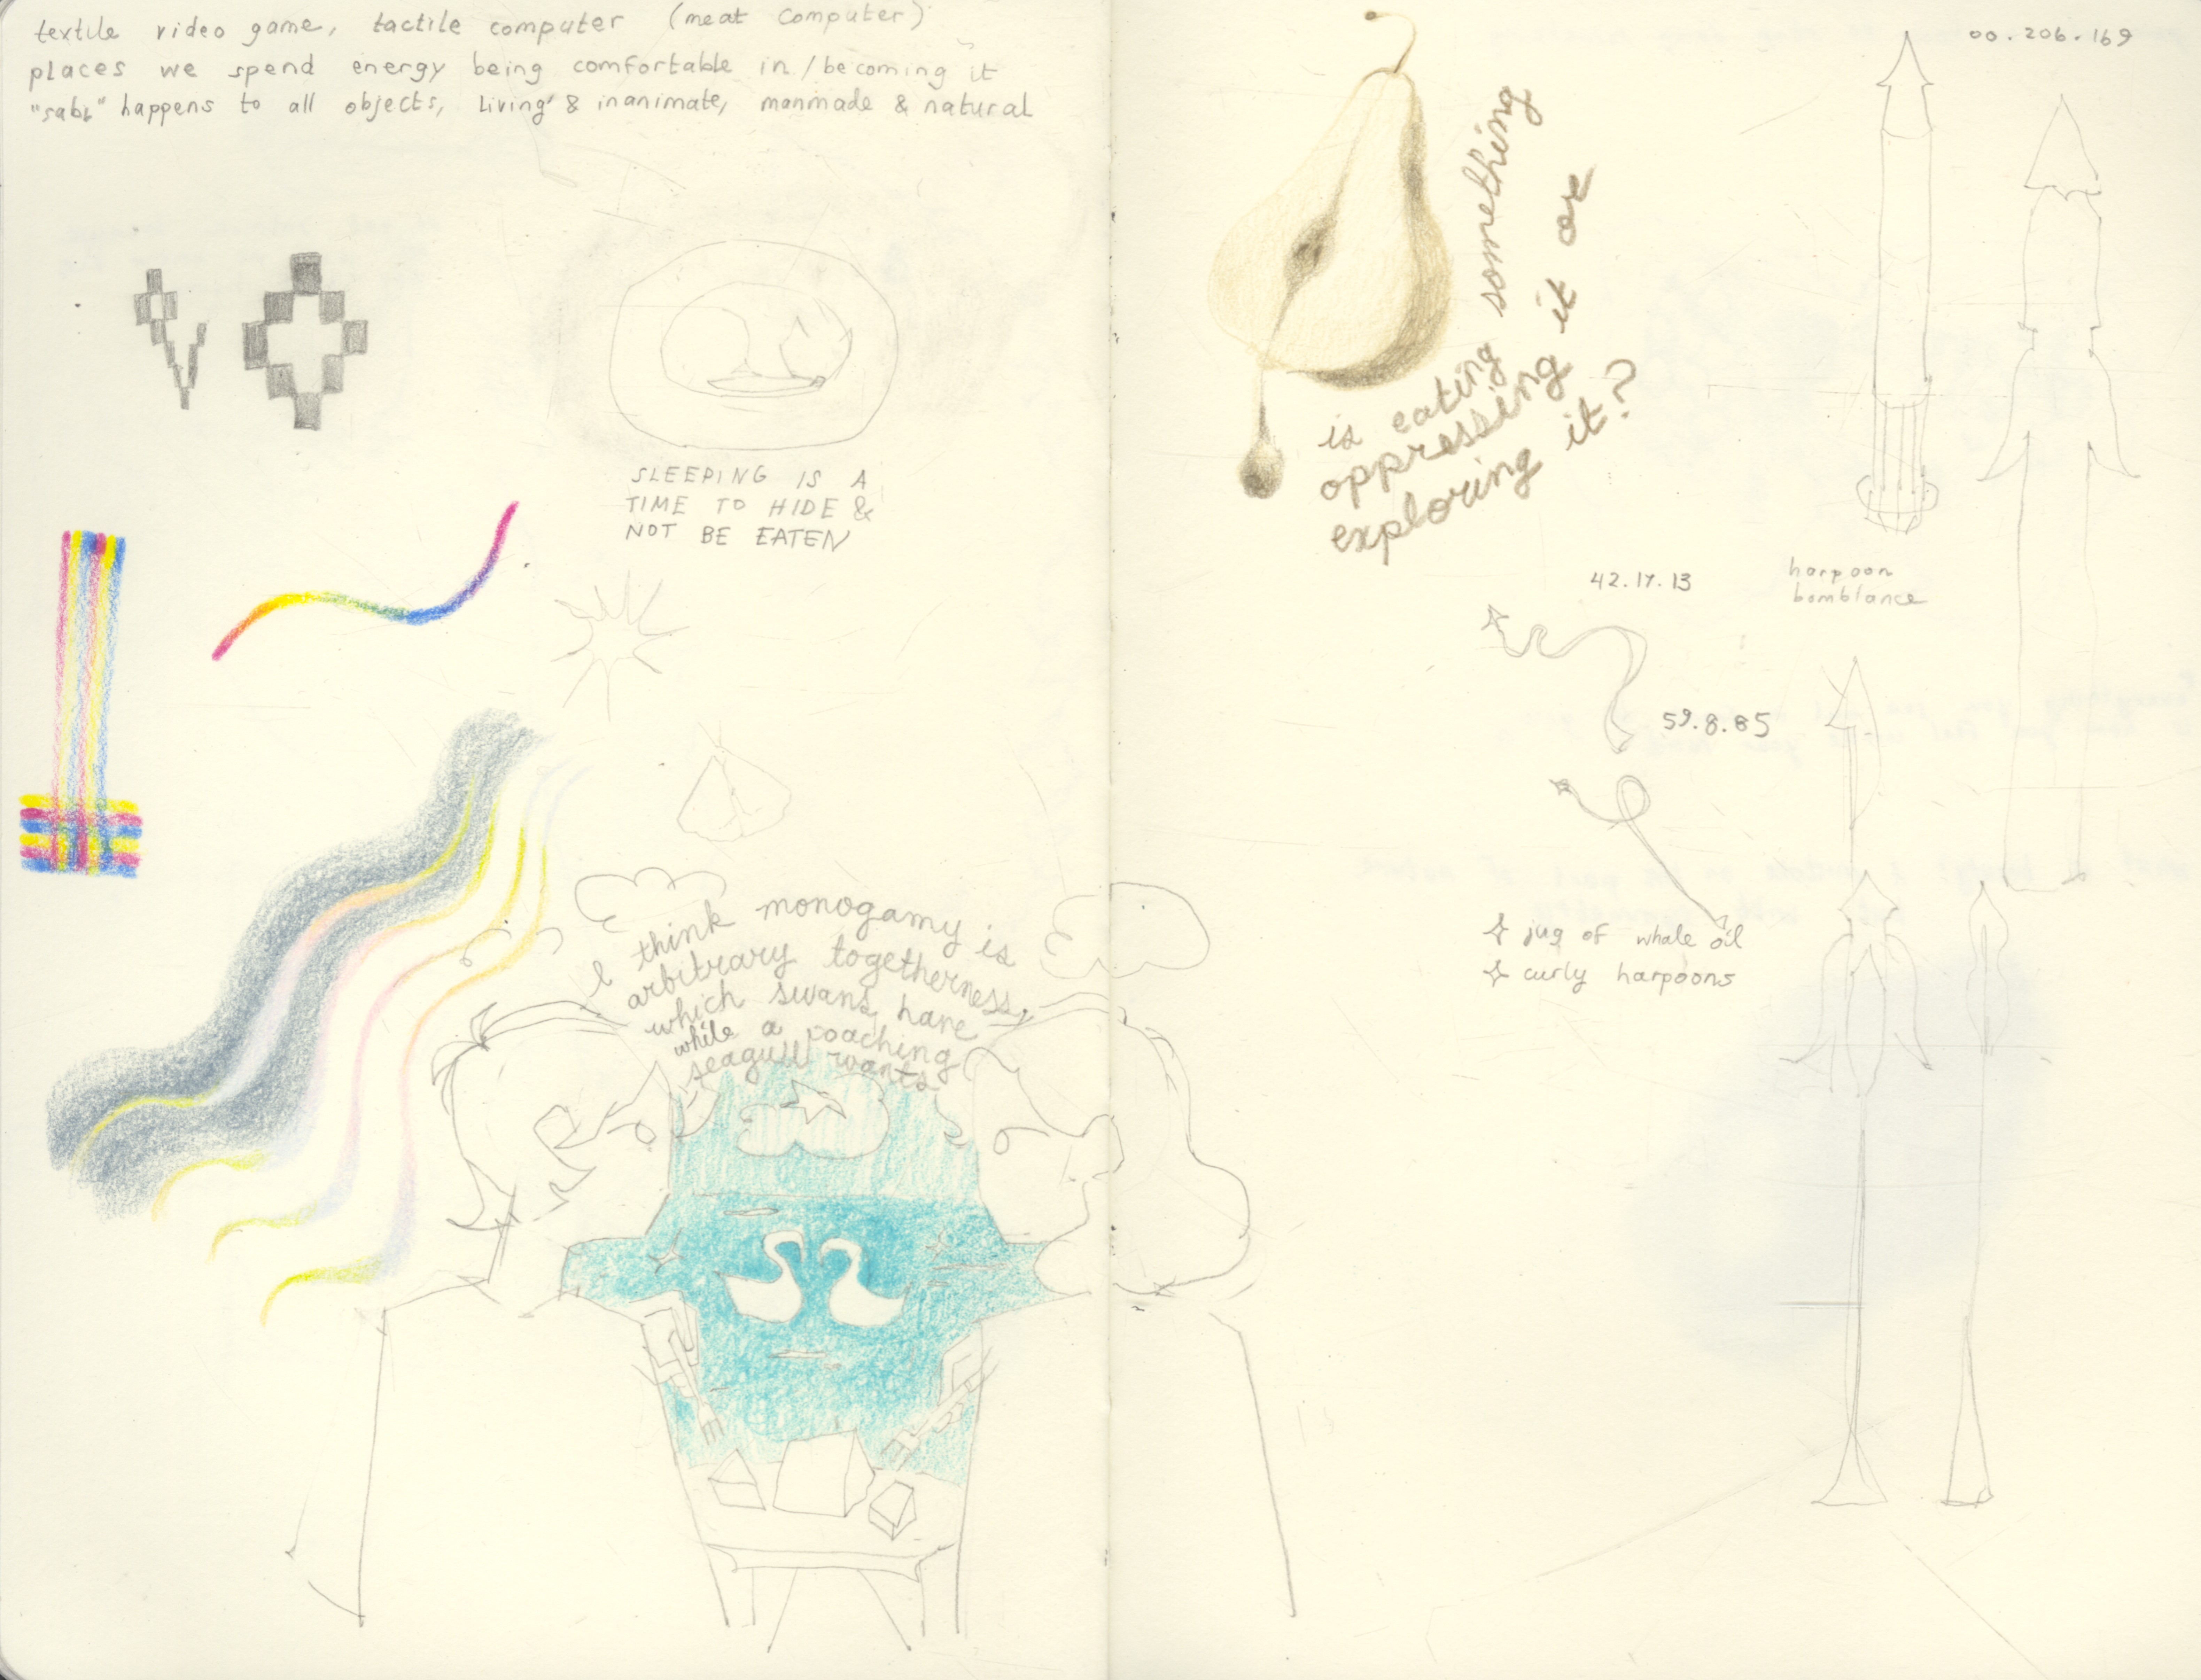 textile video game, tactile computer (meat computer)
places we spend energy being comfortable in/becoming it
happens to all objects, living & inanimate, manmade & natural
SLEEPING IS A
TIME TO HIDE &
NOT BE EATEN
I think monogamy is
arbitrary togetherness,
which swans have
while a poaching
seagull wants
is eating something
oppressing it or
exploring it?
00.206.169
harpoon
bomblance
42.17.13
59.8.85
jug of whale oil
curly harpoons